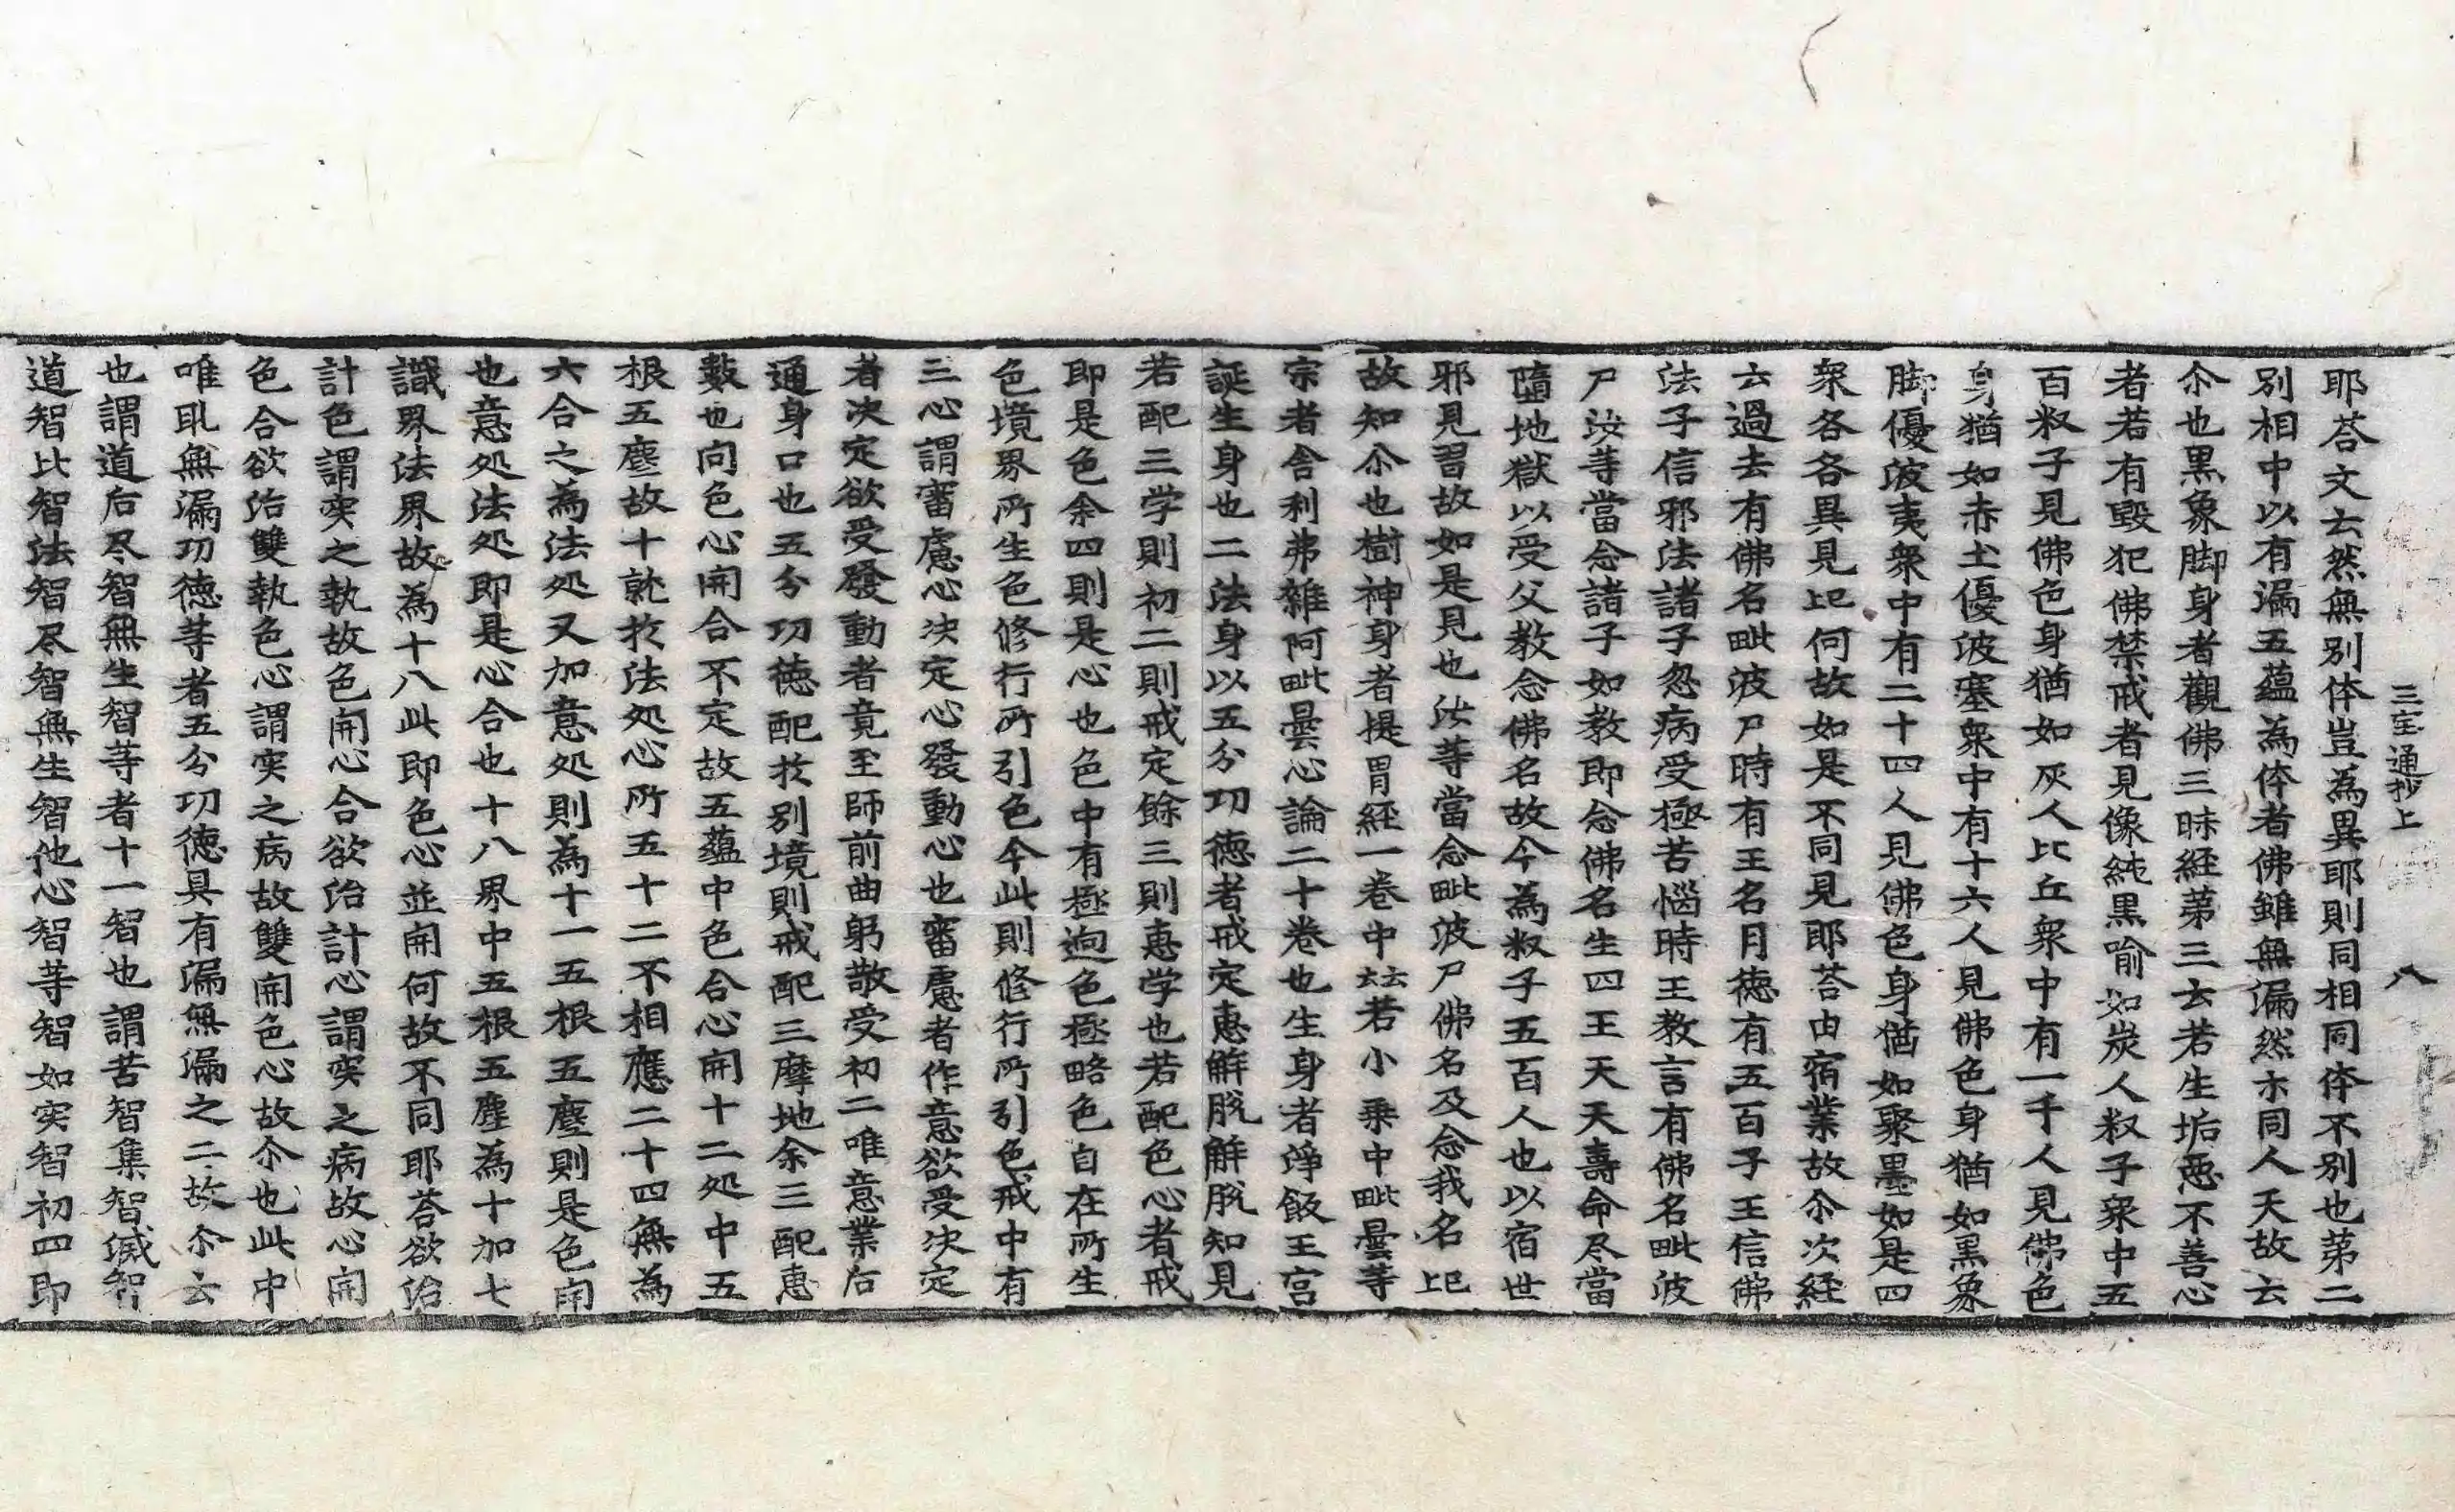 三宝通抄上　八
耶荅文云然無別体豈為異耶則同相同体不別也苐二
別相中以有漏五蘊為体者佛雖無漏然亦同人天故云
尒也黒象脚身者觀佛三昧経苐三云若生垢悪不善心
者若有毀犯佛禁戒者見像純黒喻如炭人釈子衆中五
百釈子見佛色身猶如灰人比丘衆中有一千人見佛色
身猶如赤土優波塞衆中有十六人見佛色身猶如黒象
脚優波夷衆中有二十四人見佛色身猶如聚墨如是四
衆各各異見上巳何故如是不同見耶荅由宿業故尒次経
云過去有佛名毗波尸時有王名月徳有五百子王信佛
法子信邪法諸子忽病受極苦惱時王教言有佛名毗波
尸汝等當念諸子如教即念佛名生四王天天壽命尽當
墮地獄以受父教念佛名故今為釈子五百人也以宿世
邪見習故如是見也汝等當念毗波尸佛名及念我名上巳
故知尒也樹神身者提胃経一巻中云云若小乗中毗曇等
宗者舎利弗雜阿毗曇心論二十巻也生身者淨飯王宮
誕生身也二法身以五分功徳者戒定惠解脱解脱知見
若配三学則初二則戒定餘三則惠学也若配色心者戒
即是色余四則是心也色中有極逈色極略色自在所生
色境界所生色修行所引色今此則修行所引色戒中有
三心謂審慮心决定心發動心也審慮者作意欲受决定
者决定欲受發動者竟至師前曲躬敬受初二唯意業后
通身口也五分功徳配扵別境則戒配三摩地余三配惠
數也向色心開合不定故五蘊中色合心開十二処中五
根五塵故十就扵法処心所五十二不相應二十四無為
六合之為法処又加意処則為十一五根五塵則是色開
也意処法処即是心合也十八界中五根五塵為十加七
識界法界故為十八此即色心並開何故不同耶荅欲治
計色謂実之執故色開心合欲治計心謂実之病故心開
色合欲治雙執色心謂実之病故雙開色心故尒也此中
唯取無漏功徳等者五分功徳具有漏無漏之二故尒云
也謂道后尽智無生智等者十一智也謂苦智集智滅智
道智比智法智尽智無生智他心智等智如実智初四即